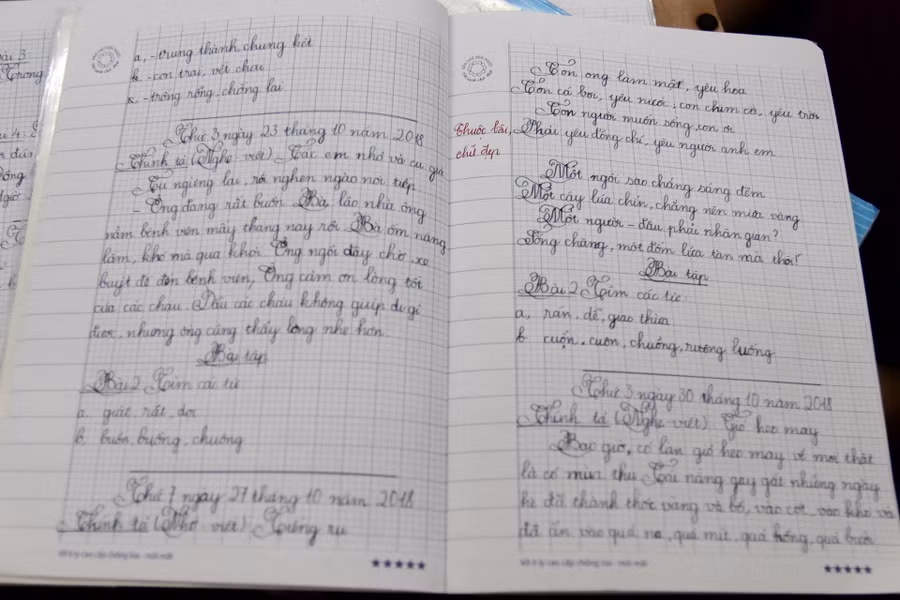 ài 3:
Trong
a, - trung thành chung kết
b. - con trai, vết chai
a, - trồng rồng, chống lại
Thứ 3 ngày 23 tháng 10 năm 2018
Chính tả (Nghe - viết) Các em nhỏ và cụ già
Cụ ngừng lại, rồi nghẹn ngào nói tiếp
- Ông đang rất buồn. Bà lão nhà ông
nằm bệnh viện mấy tháng nay rồi. Bà ốm nặng
lắm, khó mà qua khỏi. Ông ngồi đây chờ xe
buýt để đến bệnh viện, Ông cảm ơn lòng tốt
của các cháu. Dẫu các cháu không giúp được gì
được, nhưng ông cũng thấy lòng nhẹ hơn.
Bài tập
Bài 2. Tìm các từ
a. giặt, rát, dọc
b. buồn, buồng, chuông
Thứ 7 ngày 27 tháng 10 năm 2018
Chính tả (Nhớ - viết) Tiếng ru
Vở ô ly cao cấp chống lóa - mỏi mắt
★★★★★
Con ong làm mật, yêu hoa
Con cá bơi, yêu nước, con chim ca, yêu trời
Con người muốn sống, con ơi
Phải yêu đồng chí, yêu người anh em
Thuộc bài,
chữ đẹp
Một ngôi sao chẳng sáng đêm
Một cây lúa chín, chẳng nên mùa vàng
Một người - đâu phải nhân gian?
Sống chăng, một đốm lửa tàn mà thôi!
Bài tập
Bài 2. Tìm các từ:
a, rán, dễ, giao thừa
b. cuộn, cuốn, chuồng, ruộng luống
Thứ 3 ngày 30 tháng 10 năm 2018
Chính tả (Nghe - viết) Gió heo may
Bao giờ, có làn gió heo may về mới thật
là có mùa thu. Cái nắng gay gắt những ngày
hè đã thành thóc vàng và bồ, vào cót, vào kho và
đã ẩn vào quả na, quả mít, quả hồng, quả bưởi
Vở ô ly cao cấp chống lóa - mỏi mắt
★★★★★